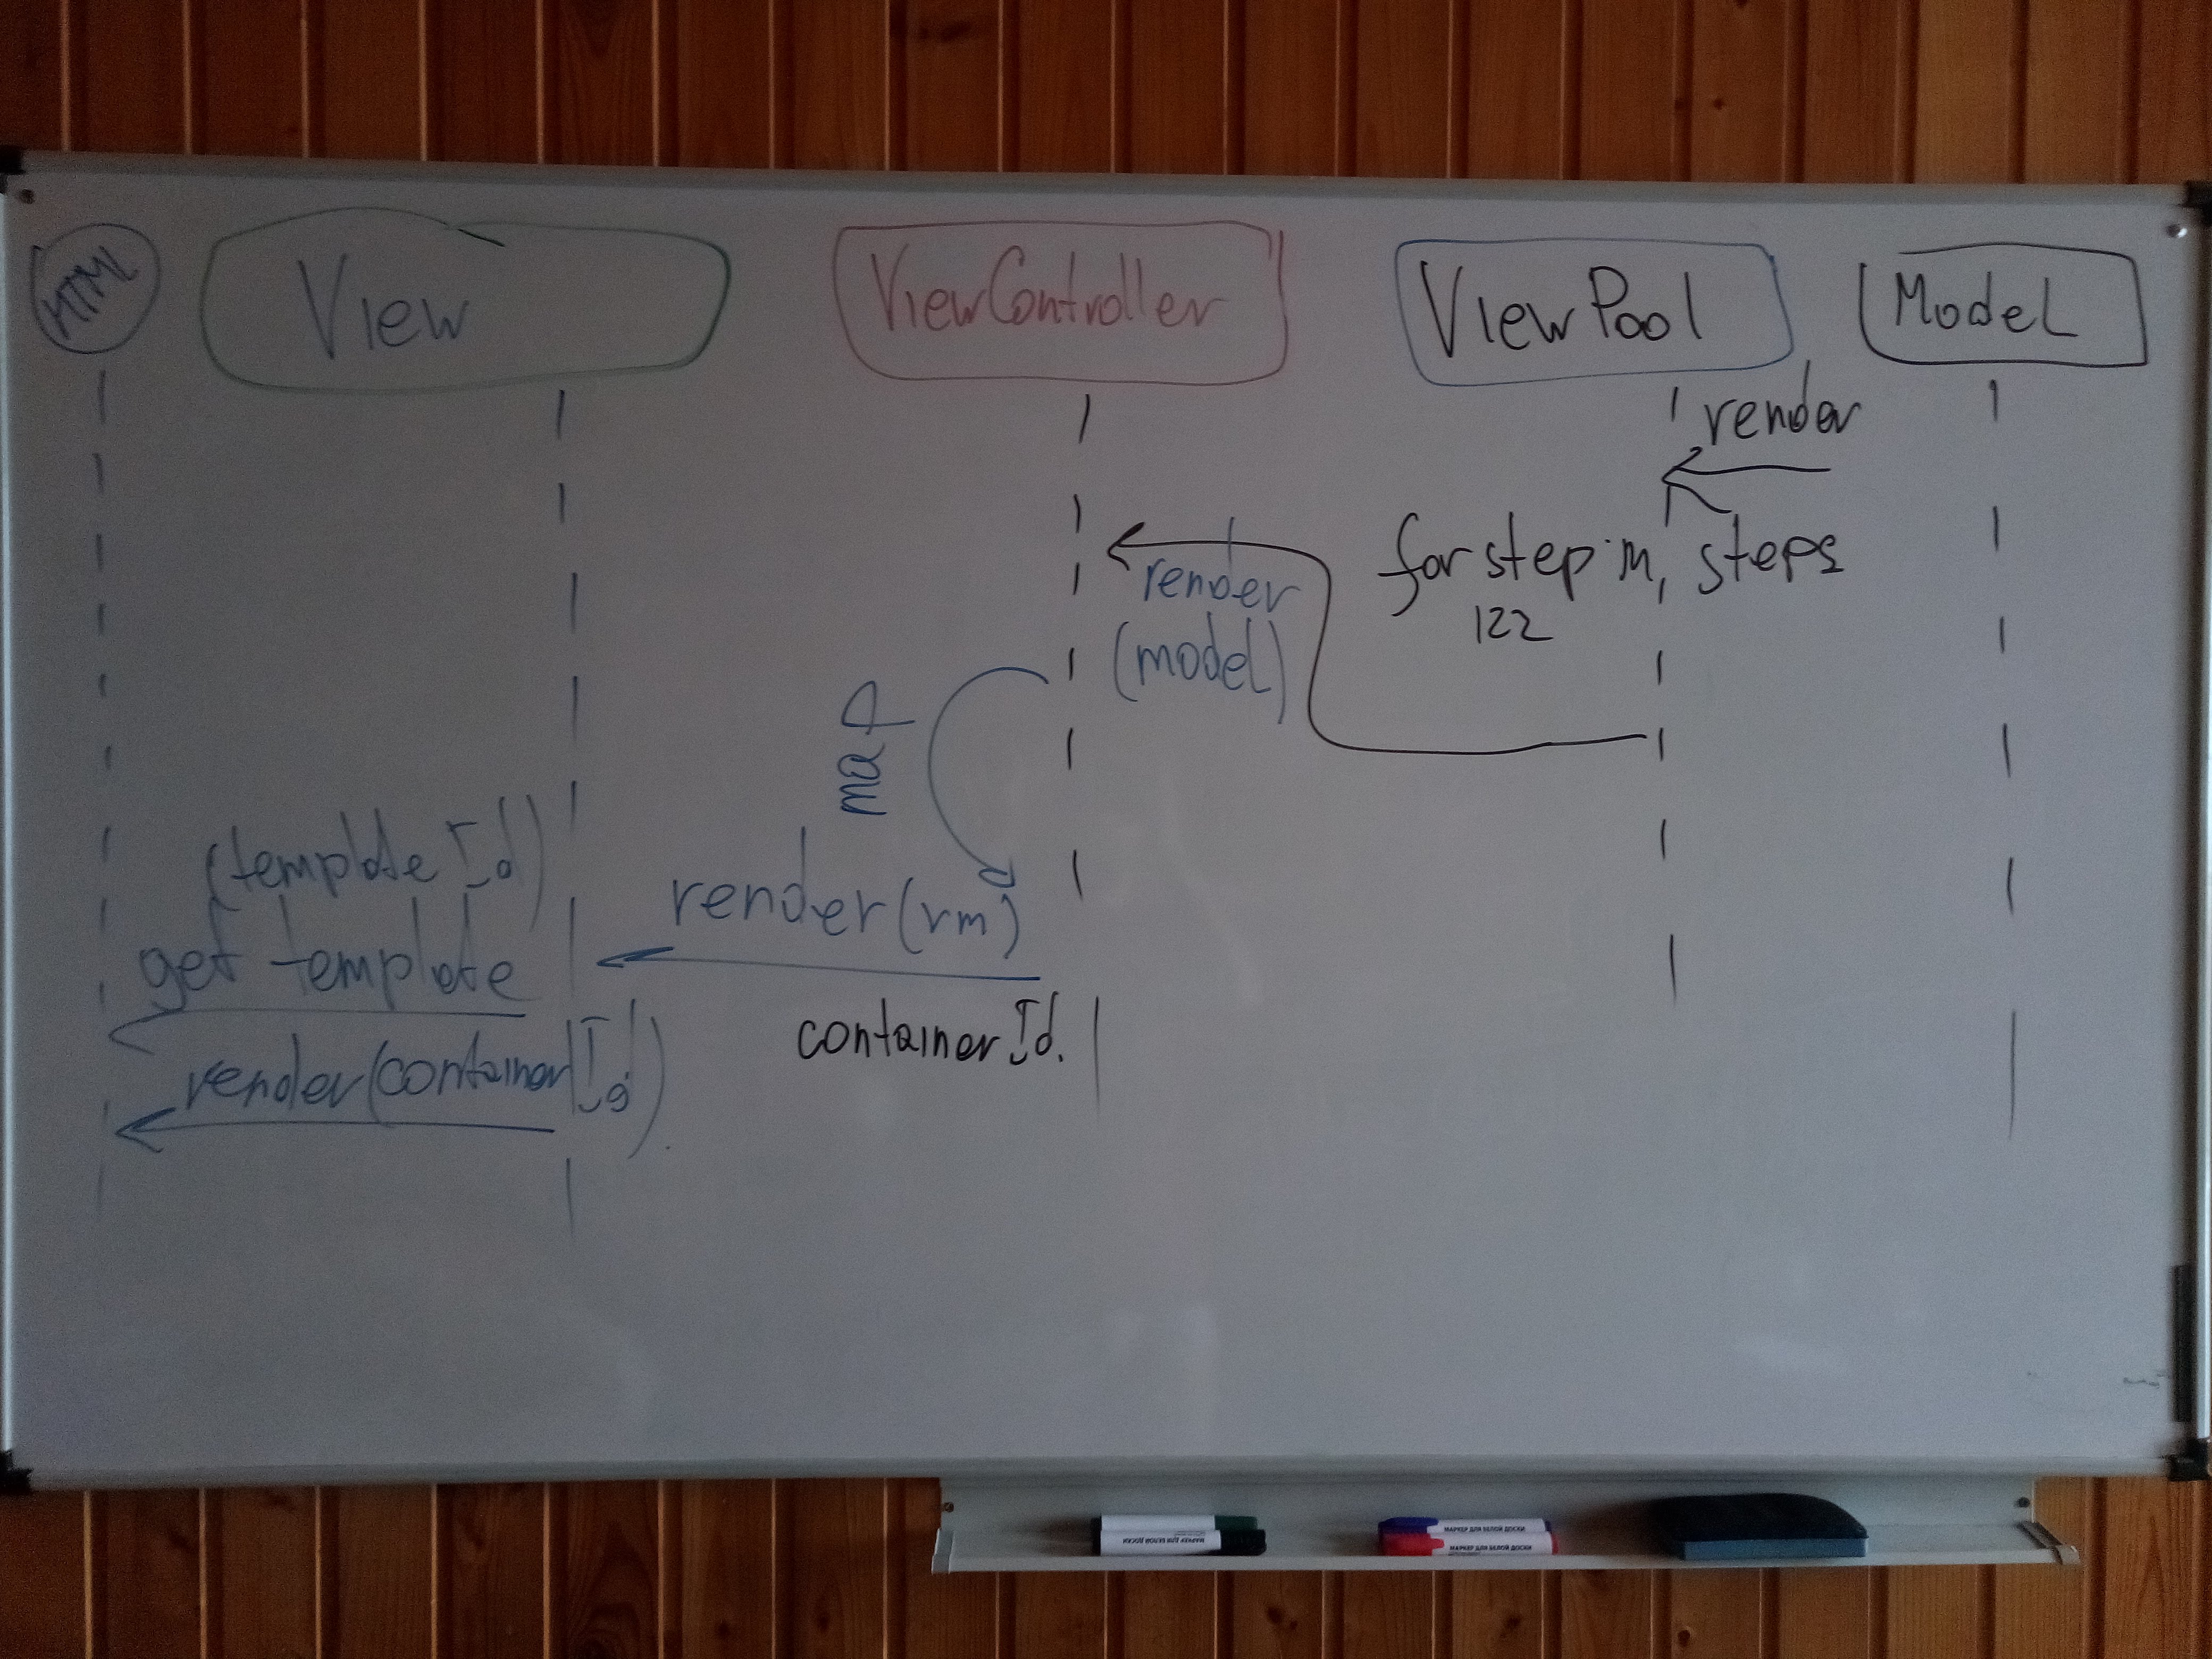 HTML
View
ViewController
ViewPool
Model
render
for step in steps
122
render
(model)
map
(template Id)
get template
render(vm)
containerId.
render(containerId).
МАРКЕР ДЛЯ БЕЛОЙ ДОСКИ
МАРКЕР ДЛЯ БЕЛОЙ ДОСКИ
МАРКЕР ДЛЯ БЕЛОЙ ДОСКИ